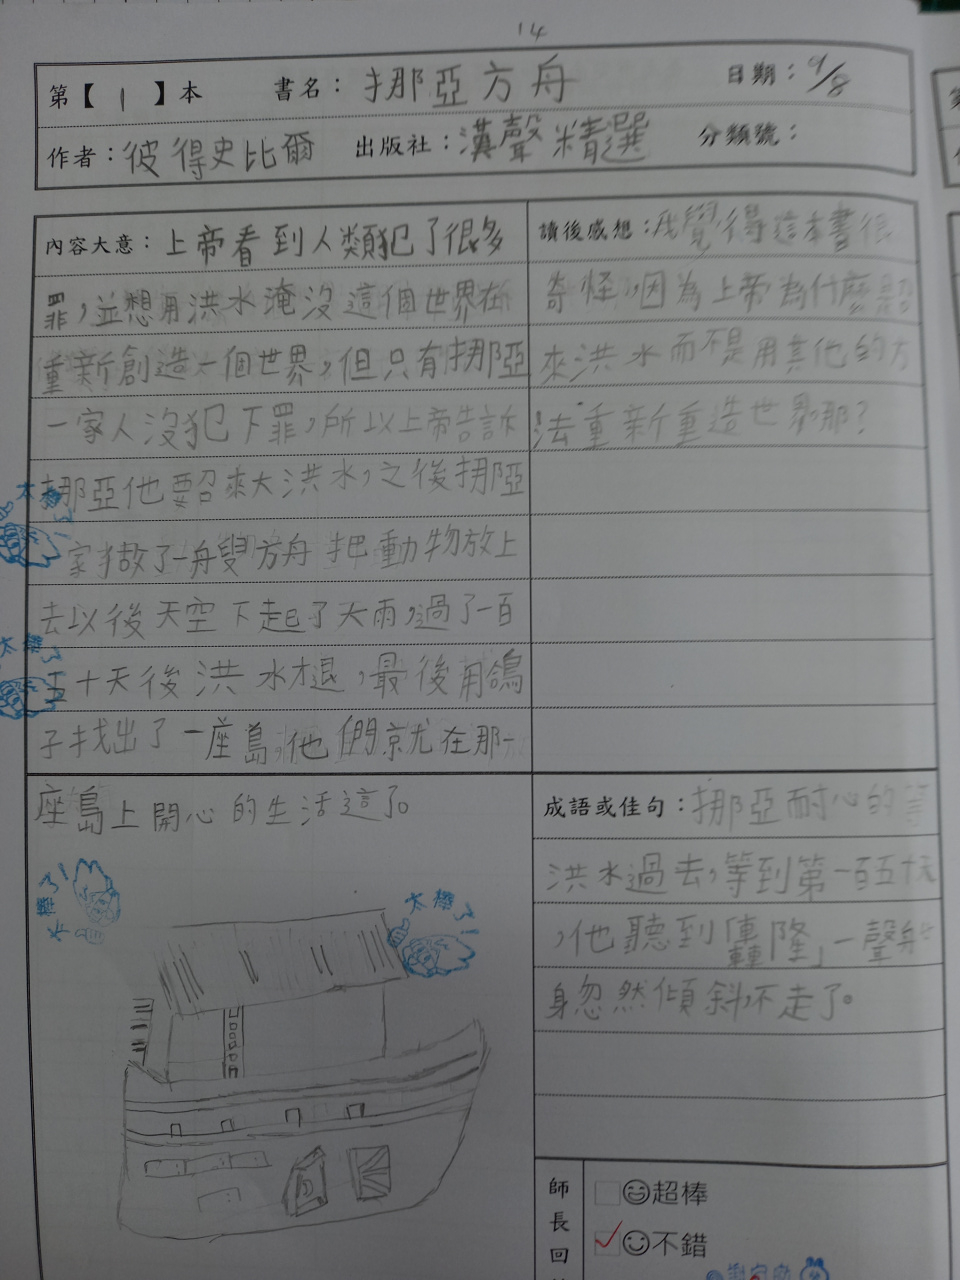 14
第【 1 】本 書名：挪亞方舟 日期：9/8
作者：彼得史比爾 出版社：漢聲精選 分類號：
內容大意：上帝看到人類犯了很多
罪，並想用洪水淹沒這個世界在
重新創造一個世界，但只有挪亞
一家人沒犯下罪，所以上帝告訴
挪亞他要召來大洪水，之後挪亞
一家做了一艘方舟把動物放上
去以後天空下起了大雨，過了一百
五十天後洪水退，最後用鴿
子找出了一座島，他們就在那一
座島上開心的生活這了。
讀後感想：我覺得這本書很
奇怪，因為上帝為什麼召
來洪水而不是用其他的方
法重新重造世界那？
成語或佳句：挪亞耐心的等
洪水過去，等到第一百五十天
，他聽到「轟隆」一聲船
身忽然傾斜，不走了。
太棒了！
太棒了！
太棒了！
太棒了！
師長回
超棒
不錯